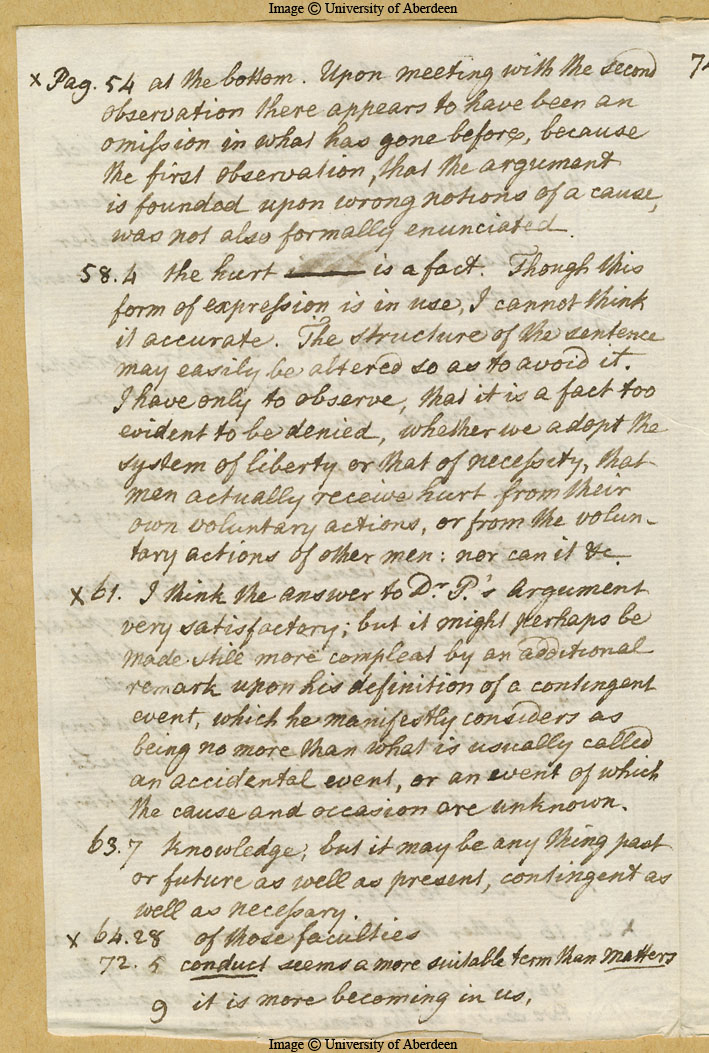 Image © University of Aberdeen
x Pag. 54 at the bottom. Upon meeting with the second
observation there appears to have been an
omission in what has gone before, because
the first observation, that the argument
is founded upon wrong notions of a cause,
was not also formally enunciated.
58.4 the hurt is a fact. Though this
form of expression is in use, I cannot think
it accurate. The structure of the sentence
may easily be altered so as to avoid it.
I have only to observe, that it is a fact too
evident to be denied, whether we adopt the
system of liberty or that of necessity, that
men actually receive hurt from their
own voluntary actions, or from the volun-
tary actions of other men: nor can it &c.
x 61. I think the answer to Dr P.'s Argument
very satisfactory; but it might perhaps be
made still more compleat by an additional
remark upon his definition of a contingent
event, which he manifestly considers as
being no more than what is usually called
an accidental event, or an event of which
the cause and occasion are unknown.
63.7 knowledge; but it may be any thing past
or future as well as present, contingent as
well as necessary.
x 64.28 of those faculties
72.5 conduct seems a more suitable term than matters
9 it is more becoming in us,
Image © University of Aberdeen